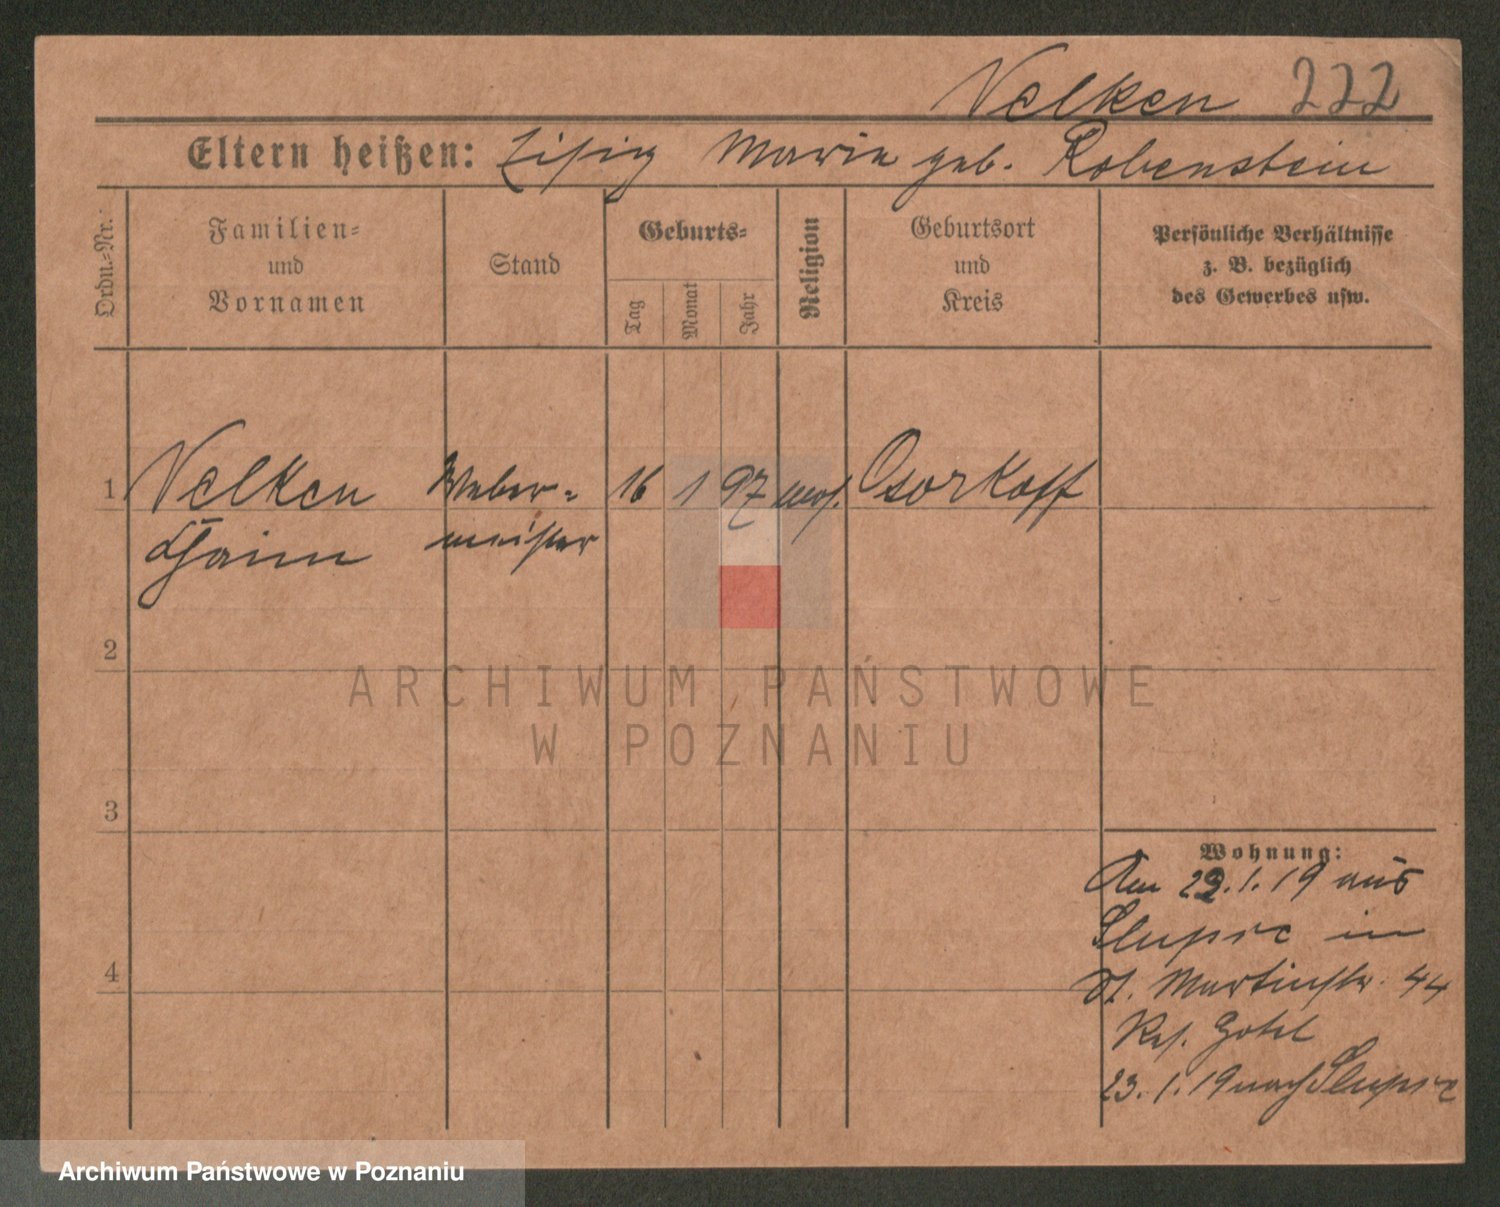 Velken 222
Eltern heißen: Zisig Marie geb. Robenstein
Ordn.-Nr.
Familien-
und
Vornamen
Stand
Geburts-
Tag
Monat
Jahr
Religion
Geburtsort
und
Kreis
Persönliche Verhältnisse
z. B. bezüglich
des Gewerbes usw.
1 Velken Weber- 16 1 97 mos. Osorkoff
Chaim meister
2
3
4
Wohnung:
Am 22.1.19 aus
Slupsc in
St. Martinstr. 44
Res. Hotel
23.1.19 nach Slupsc
ARCHIWUM PAŃSTWOWE
W POZNANIU
Archiwum Państwowe w Poznaniu